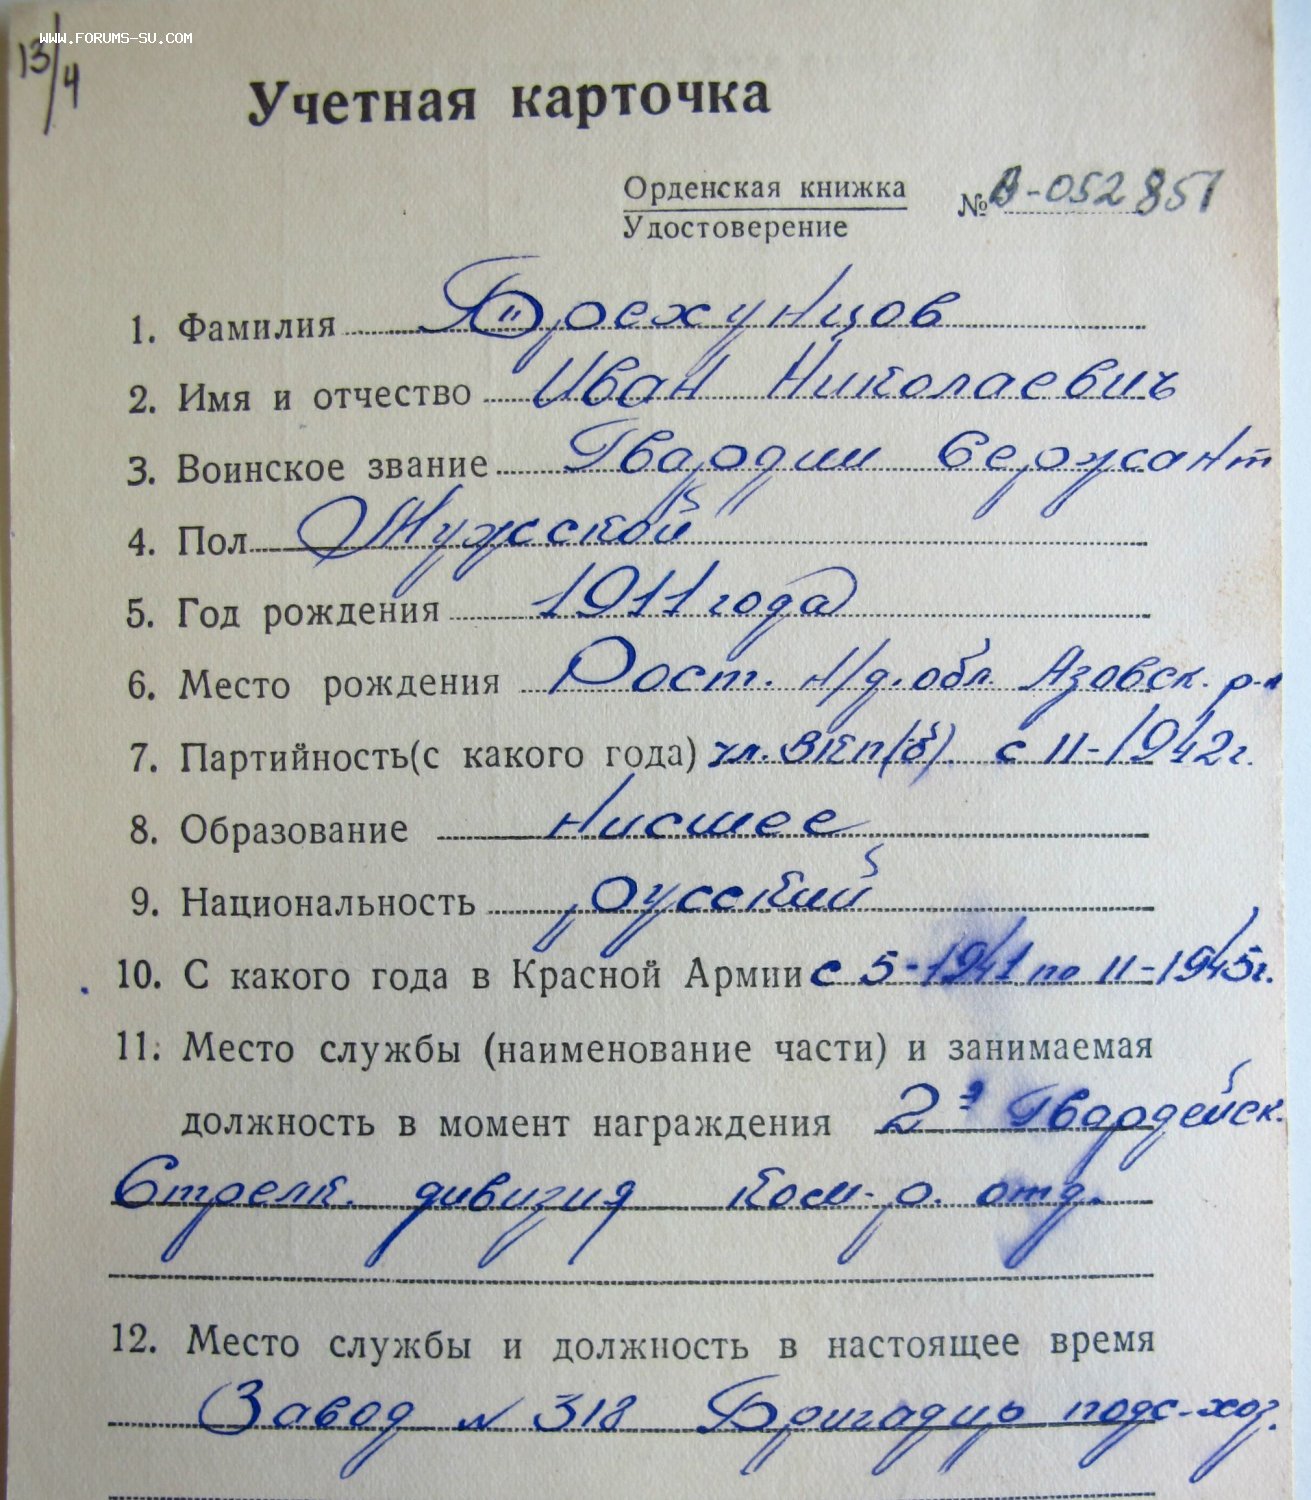 www.forums-su.com
13/4
Учетная карточка
Орденская книжка
Удостоверение
№ В-052851
1. Фамилия Брехунцов
2. Имя и отчество Иван Николаевич
3. Воинское звание Гвардии Сержант
4. Пол Мужской
5. Год рождения 1911 года
6. Место рождения Рост. н/д. обл. Азовск. р-н
7. Партийность (с какого года) чл. ВКП(б). с 11-1942г.
8. Образование Нисшее
9. Национальность русский
10. С какого года в Красной Армии с 5-1941 по 11-1945г.
11. Место службы (наименование части) и занимаемая
должность в момент награждения 2я Гвардейск.
Стрелк. дивизия Ком-р. отд.
12. Место службы и должность в настоящее время
Завод № 318 Бригадир подс-хоз.